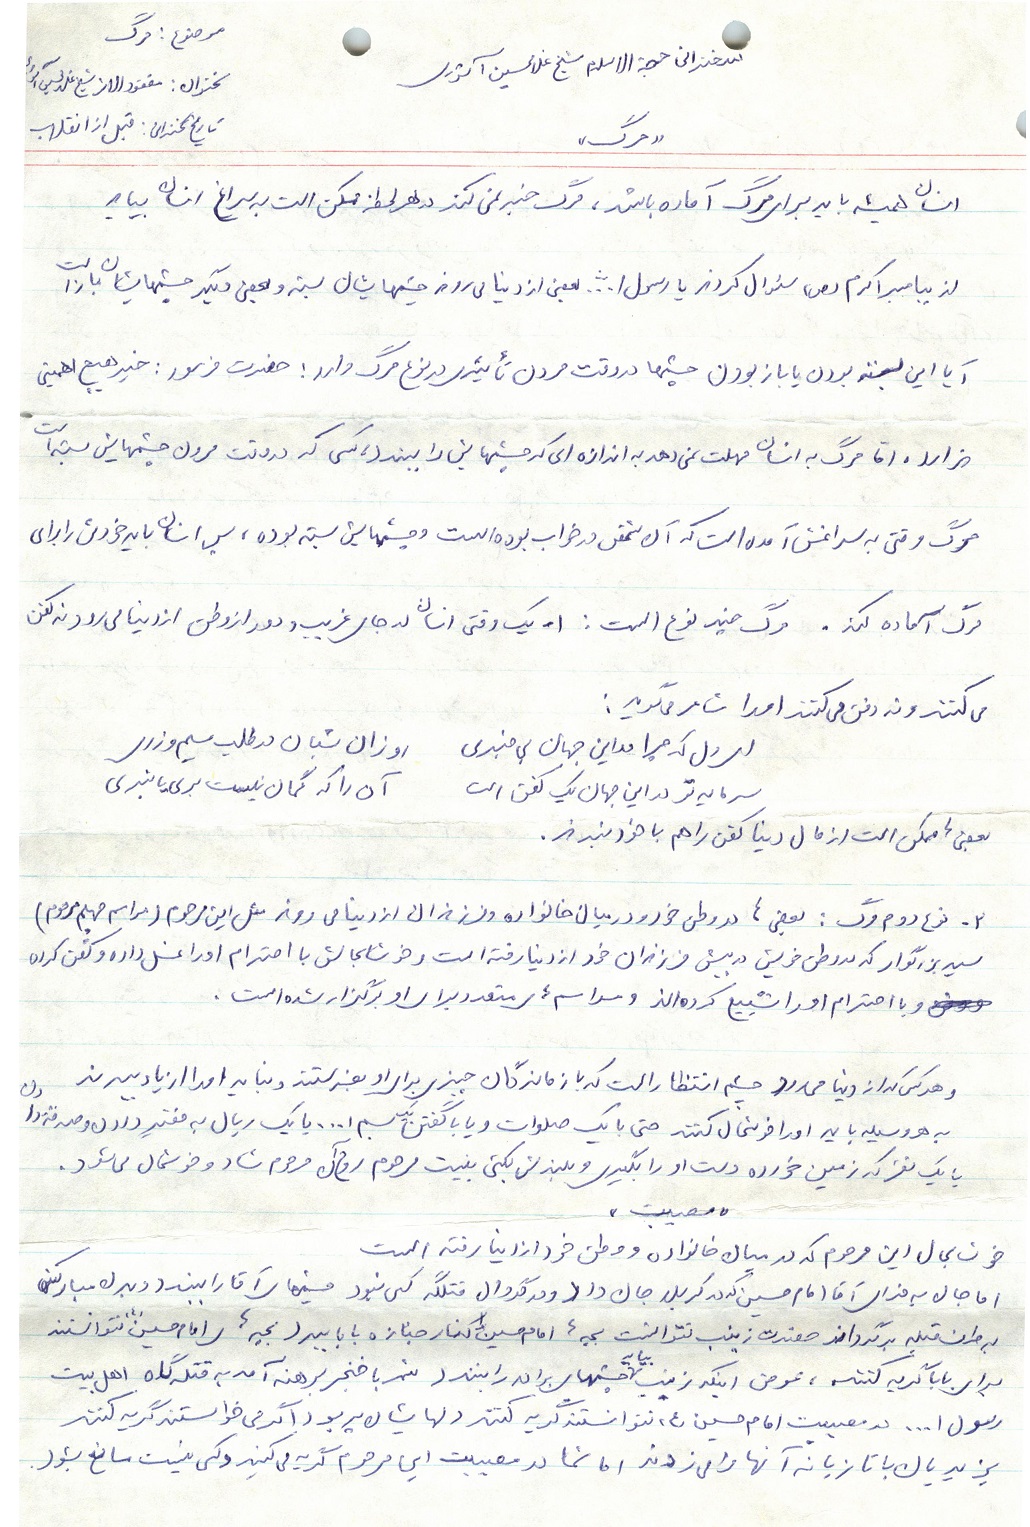 موضوع : مرگ
سخنرانی حجة الاسلام شیخ غلامحسین آذری
سخنران : مفقودالاثر شیخ غلامحسین
تاریخ سخنرانی : قبل از انقلاب
«مرگ»
انسان همیشه باید برای مرگ آماده باشد ، مرگ خبر نمی کند در هر لحظه ممکن است به سراغ انسان بیاید
از پیامبر اکرم (ص) سئوال کردند یا رسول ا... بعضی از دنیا می روند چشمهایشان بسته و بعضی دیگر چشمهایشان باز است
آیا این بسته بودن یا باز بودن چشمها در وقت مردن تأثیری در نوع مرگ دارد ؛ حضرت فرمود : خیر هیچ اهمیتی
ندارد . امّا مرگ به انسان مهلت نمی دهد به اندازه ای که چشمهایش را ببندد ، کسی که در وقت مردن چشمهایش بسته است
مرگ وقتی به سراغش آمده است که آن شخص در خواب بوده است و چشمهایش بسته بوده ، پس انسان باید خودش را برای
مرگ آماده کند . مرگ چند نوع است : ۱- یک وقتی انسان در جای غریب و دور از وطن از دنیا می رود نه کفن
می کنند و نه دفن می کنند او را شاعر می گوید :
ای دل که چرا در این جهان بی خبری روزان شبان در طلب سیم و زری
سرمایه تو در این جهان یک کفن است آن را که گمان نیست بری یا نبری
بعضی ها ممکن است از مال دنیا کفن را هم با خود نبرند .
۲- نوع دوم مرگ : بعضی ها در وطن خود در میان خانواده و فرزندان از دنیا می روند مثل این مرحوم (مراسم چهلم مرحوم)
سید بزرگوار که در وطن خویش در پیش فرزندان خود از دنیا رفته است و خوشابحالش با احترام او را غسل داده و کفن کرده
و با احترام او را تشییع کرده اند و مراسم های متعدد برای او برگزار شده است .
و هر کس که از دنیا می رود چشم انتظار است که بازماندگان چیزی برای او بفرستند و نباید او را از یاد ببرند
به هر وسیله باید او را خوشحال کنند حتی با یک صلوات و یا با گفتن یک بسم ا... ، با یک ریال به فقیر دادن و صدقه دادن
یا یک نفر که زمین خورده دست او را بگیری و بلندش بکنی بنیت مرحوم روح آن مرحوم شاد و خوشحال می شود .
«مصیبت»
خوشا بحال این مرحوم که در میان خانواده و وطن خود از دنیا رفته است
اما جان به فدای آقا امام حسین که در کربلا جان داد و در گودال قتلگه کسی نبود چشمهای آقا را ببندد و بدن مبارکش
به طرف قبله برگرداند حضرت زینب نتوانست بچه های امام حسین را کنار جنازه بابا ببرد بچه های امام حسین نتوانستند
برای بابا گریه کنند ، عوض اینکه زینب بیاید چشمهای برادر را ببندد شمر با خنجر برهنه آمد به قتلگاه اهل بیت
رسول ا... در مصیبت امام حسین (ع) نتوانستند گریه کنند دلهایشان پر بود اگر می خواستند گریه کنند
یزیدیان با تازیانه آنها را می زدند اما شما در مصیبت این مرحوم گریه می کنید و کسی نیست مانع بشود .